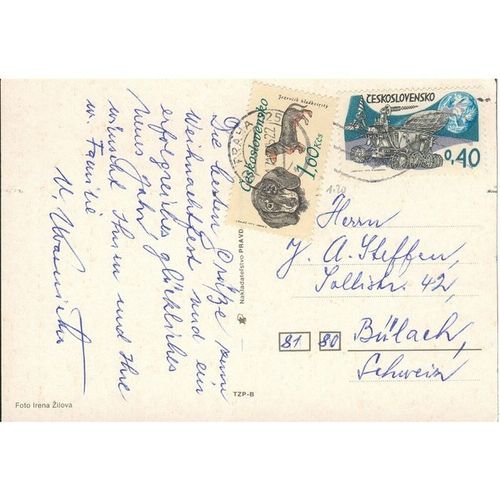 Die besten Grüße zum
Weihnachtsfest und ein
erfolgreiches glückliches
neues Jahr
wünscht Ihnen und Ihre
w. Familie
Jezevčík hladkosrstý
Československo
1,60 Kčs
ČESKOSLOVENSKO
0,40
PRAHA
1.20
Herrn
J. A. Steffen,
Sollistr. 42,
81 80 Bülach,
Schweiz
Nakladatelstvo PRAVDA
TZP-B
Foto Irena Žilová